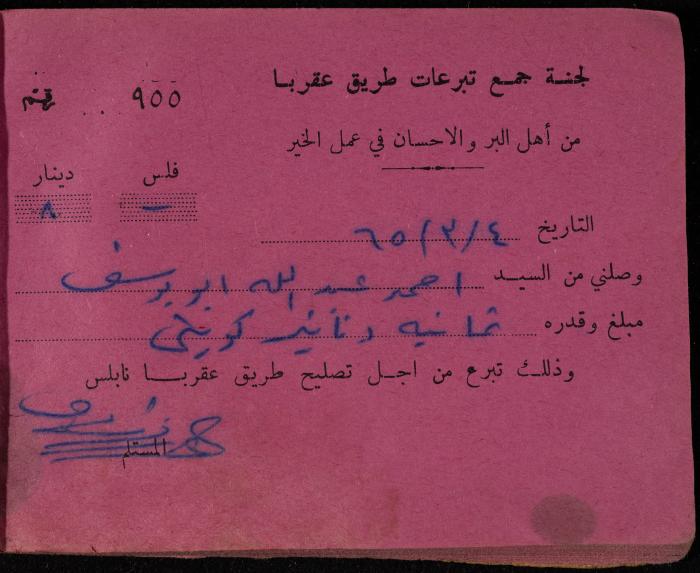 لجنة جمع تبرعات طريق عقربا
من أهل البر والاحسان في عمل الخير
٩٥٥ .. رقم
فلس دينار
— ٨
التاريخ ٦٥/٣/٤
وصلني من السيد احمد عبد الله ابو يوسف
مبلغ وقدره ثمانيه دنانير كويتي
وذلك تبرع من اجل تصليح طريق عقربا نابلس
المستلم